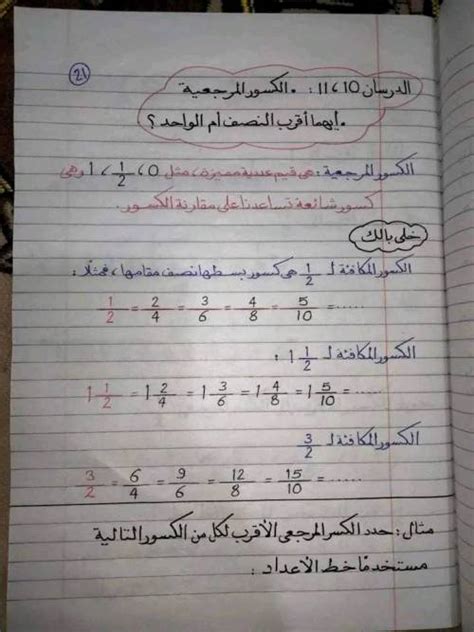 21
الدرسان 10، 11 : • الكسور المرجعية
• أيهما أقرب النصف أم الواحد ؟
الكسور المرجعية : هي قيم عددية مميزة ، مثل 0 ، 1/2 ، 1 وهى
كسور شائعة تساعدنا على مقارنة الكسور .
خلى بالك
الكسور المكافئة لـ 1/2 هى كسور بسطها نصف مقامها ، فمثلًا :
1/2 = 2/4 = 3/6 = 4/8 = 5/10 = ......
الكسور المكافئة لـ 1 1/2 :
1 1/2 = 1 2/4 = 1 3/6 = 1 4/8 = 1 5/10 = ......
الكسور المكافئة لـ 3/2
3/2 = 6/4 = 9/6 = 12/8 = 15/10 = ......
مثال : حدد الكسر المرجعى الأقرب لكل من الكسور التالية
مستخدمًا خط الأعداد :